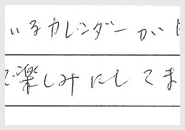 いるカレンダーが
楽しみにしてま